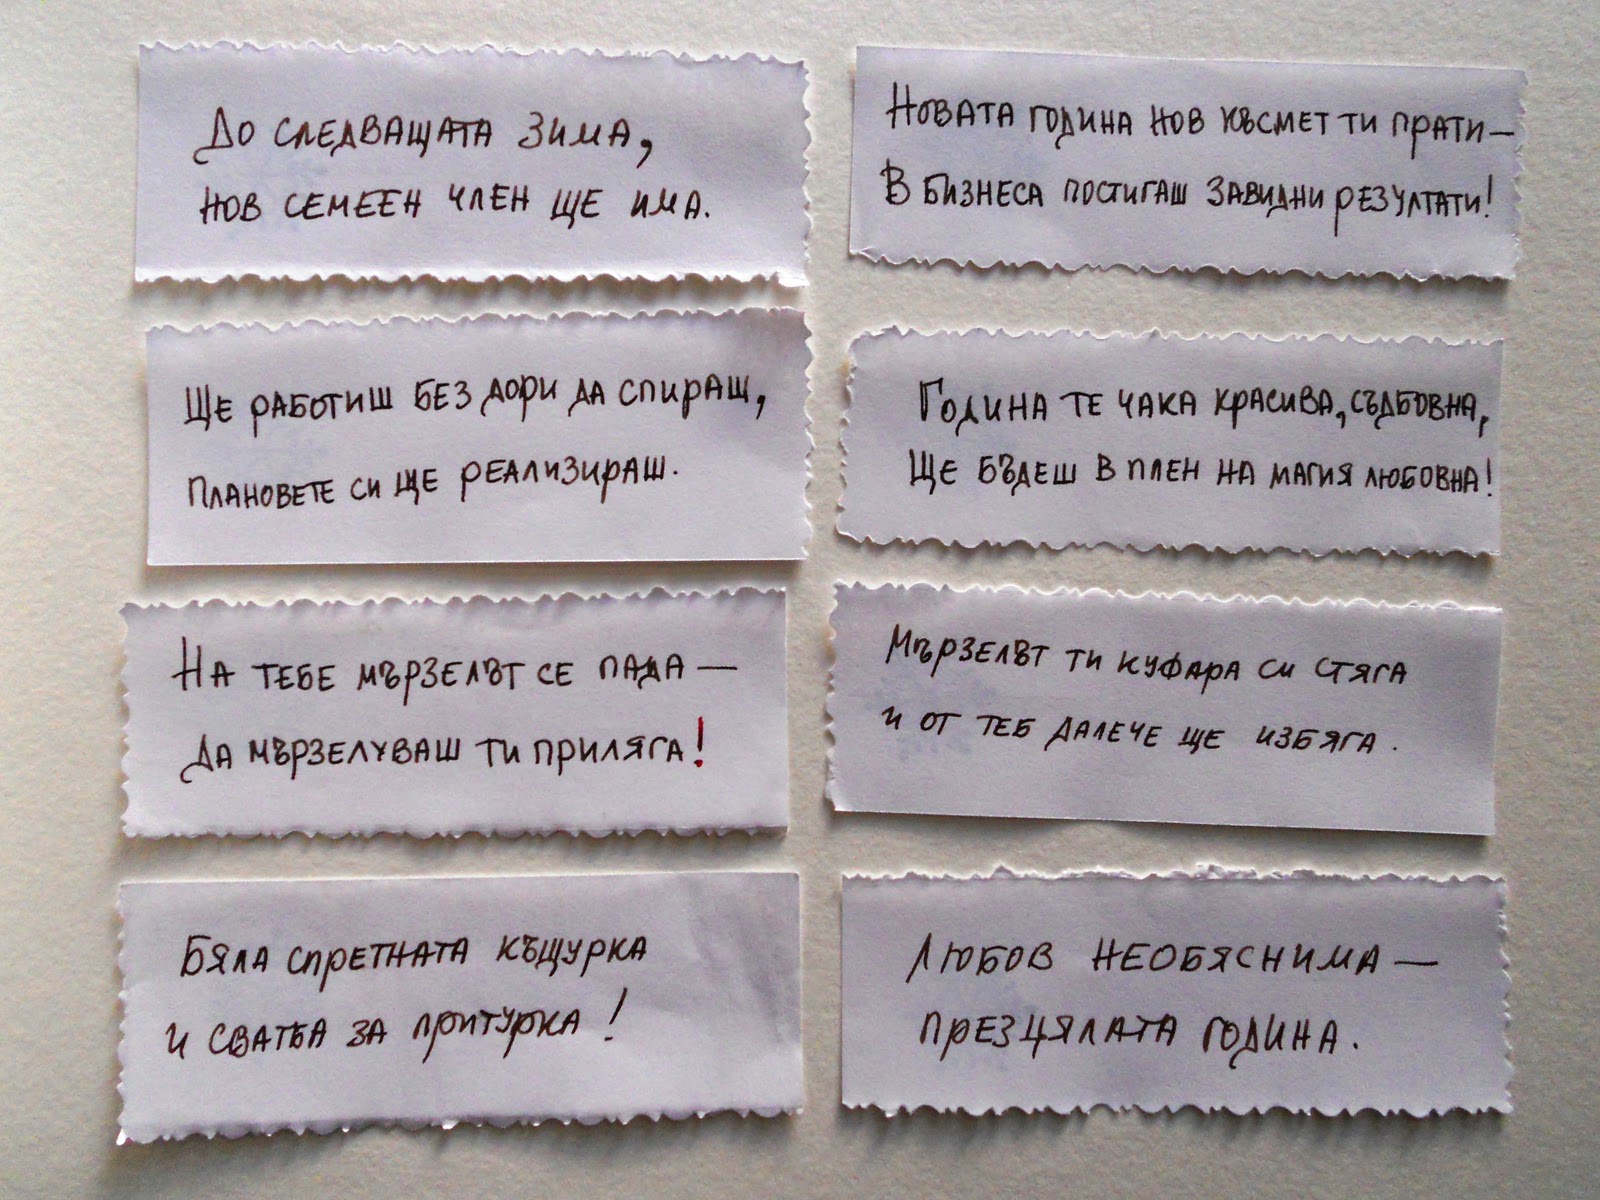 До следващата зима,
нов семеен член ще има.
Новата година нов късмет ти прати –
в бизнеса постигаш завидни резултати!
Ще работиш без дори да спираш,
плановете си ще реализираш.
Година те чака красива, съдбовна,
ще бъдеш в плен на магия любовна!
На тебе мързелът се пада –
да мързелуваш ти приляга!
Мързелът ти куфара си стяга
и от теб далече ще избяга.
Бяла спретната къщурка
и сватба за притурка!
Любов необяснима –
през цялата година.